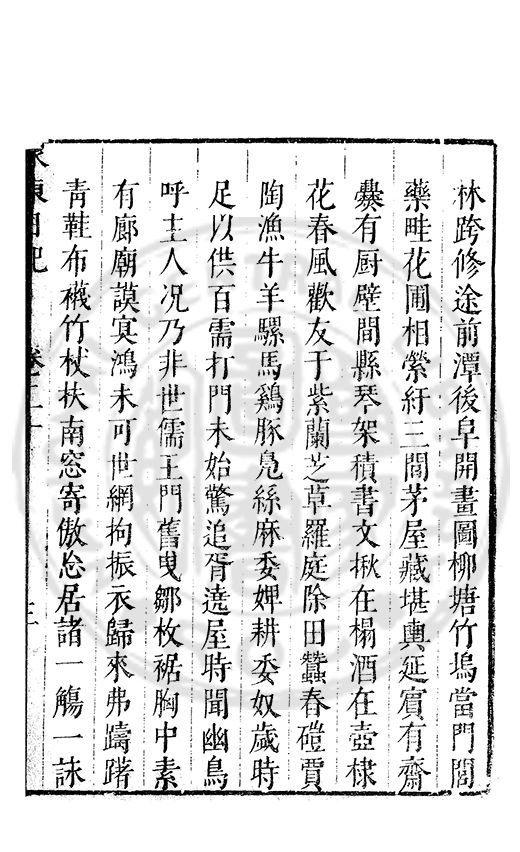 林跨修途前潭後阜開畫圖柳塘竹塢當門閭
藥畦花圃相縈紆三間茅屋藏堪輿延賓有齋
爨有厨壁間縣琴架積書文楸在榻酒在壺棣
花春風歡友于紫蘭芝草羅庭除田蠶春磑賈
陶漁牛羊騾馬鷄豚鳧絲麻委婢耕委奴歲時
足以供百需打門未始驚追胥遶屋時聞幽鳥
呼主人况乃非世儒王門舊曳鄒枚裾胸中素
有廊廟謨冥鴻未可世網拘振衣歸來弗躊躇
青鞋布襪竹杖扶南窓寄傲怂居諸一觴一詠